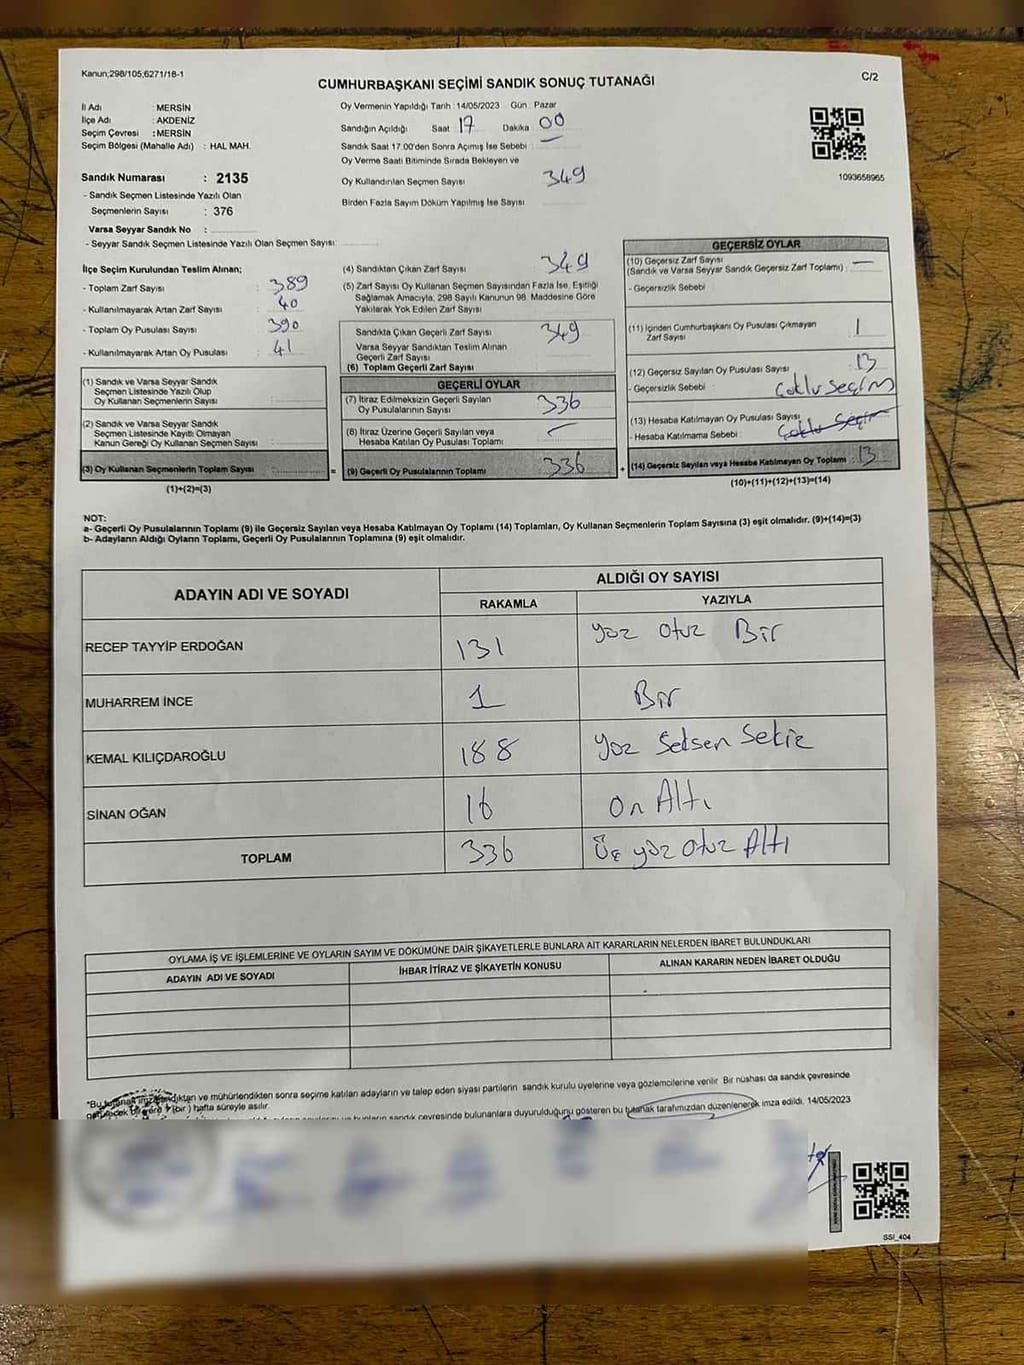 Kanun;298/105,6271/18-1
C/2
CUMHURBAŞKANI SEÇİMİ SANDIK SONUÇ TUTANAĞI
İl Adı : MERSİN
İlçe Adı : AKDENİZ
Seçim Çevresi : MERSİN
Seçim Bölgesi (Mahalle Adı) : HAL MAH.
Sandık Numarası : 2135
- Sandık Seçmen Listesinde Yazılı Olan
Seçmenlerin Sayısı : 376
Varsa Seyyar Sandık No :
- Seyyar Sandık Seçmen Listesinde Yazılı Olan Seçmen Sayısı:
Oy Vermenin Yapıldığı Tarih : 14/05/2023 Gün : Pazar
Sandığın Açıldığı Saat 17 Dakika : 00
Sandık Saat 17.00'den Sonra Açımış İse Sebebi : —
Oy Verme Saati Bitiminde Sırada Bekleyen ve
Oy Kullandırılan Seçmen Sayısı 349
Birden Fazla Sayım Döküm Yapılmış İse Sayısı
1093658965
İlçe Seçim Kurulundan Teslim Alınan;
- Toplam Zarf Sayısı : 389
- Kullanılmayarak Artan Zarf Sayısı : 40
- Toplam Oy Pusulası Sayısı : 390
- Kullanılmayarak Artan Oy Pusulası : 41
(1) Sandık ve Varsa Seyyar Sandık
Seçmen Listesinde Yazılı Olup
Oy Kullanan Seçmenlerin Sayısı :
(2) Sandık ve Varsa Seyyar Sandık
Seçmen Listesinde Kayıtlı Olmayan
Kanun Gereği Oy Kullanan Seçmen Sayısı :
(3) Oy Kullanan Seçmenlerin Toplam Sayısı :
(1)+(2)=(3)
(4) Sandıktan Çıkan Zarf Sayısı 349
(5) Zarf Sayısı Oy Kullanan Seçmen Sayısından Fazla İse, Eşitliği
Sağlamak Amacıyla, 298 Sayılı Kanunun 98. Maddesine Göre
Yakılarak Yok Edilen Zarf Sayısı
Sandıkta Çıkan Geçerli Zarf Sayısı 349
Varsa Seyyar Sandıktan Teslim Alınan
Geçerli Zarf Sayısı
(6) Toplam Geçerli Zarf Sayısı
GEÇERLİ OYLAR
(7) İtiraz Edilmeksizin Geçerli Sayılan
Oy Pusulalarının Sayısı 336
(8) İtiraz Üzerine Geçerli Sayılan veya
Hesaba Katılan Oy Pusulası Toplamı —
= (9) Geçerli Oy Pusulalarının Toplamı 336
GEÇERSİZ OYLAR
(10) Geçersiz Zarf Sayısı
(Sandık ve Varsa Seyyar Sandık Geçersiz Zarf Toplamı) : —
- Geçersizlik Sebebi
(11) İçinden Cumhurbaşkanı Oy Pusulası Çıkmayan
Zarf Sayısı : 1
(12) Geçersiz Sayılan Oy Pusulası Sayısı : 13
- Geçersizlik Sebebi : Çoklu Seçim
(13) Hesaba Katılmayan Oy Pusulası Sayısı
- Hesaba Katılmama Sebebi : Çoklu Seçim
+ (14) Geçersiz Sayılan veya Hesaba Katılmayan Oy Toplamı : 13
(10)+(11)+(12)+(13)=(14)
NOT:
a- Geçerli Oy Pusulalarının Toplamı (9) ile Geçersiz Sayılan veya Hesaba Katılmayan Oy Toplamı (14) Toplamları, Oy Kullanan Seçmenlerin Toplam Sayısına (3) eşit olmalıdır. (9)+(14)=(3)
b- Adayların Aldığı Oyların Toplamı, Geçerli Oy Pusulalarının Toplamına (9) eşit olmalıdır.
ADAYIN ADI VE SOYADI ALDIĞI OY SAYISI
RAKAMLA YAZIYLA
RECEP TAYYİP ERDOĞAN 131 yüz otuz Bir
MUHARREM İNCE 1 Bir
KEMAL KILIÇDAROĞLU 188 yüz Seksen Sekiz
SİNAN OĞAN 16 On Altı
TOPLAM 336 Üç yüz otuz Altı
OYLAMA İŞ VE İŞLEMLERİNE VE OYLARIN SAYIM VE DÖKÜMÜNE DAİR ŞİKAYETLERLE BUNLARA AİT KARARLARIN NELERDEN İBARET BULUNDUKLARI
ADAYIN ADI VE SOYADI İHBAR İTİRAZ VE ŞİKAYETİN KONUSU ALINAN KARARIN NEDEN İBARET OLDUĞU
"Bu tutanak imzalandıktan ve mühürlendikten sonra seçime katılan adayların ve talep eden siyasi partilerin sandık kurulu üyelerine veya gözlemcilerine verilir. Bir nüshası da sandık çevresinde
görülecek bir yere 1 (bir) hafta süreyle asılır.
sandık çevresinde bulunanlara duyurulduğunu gösteren bu tutanak tarafımızdan düzenlenerek imza edildi. 14/05/2023
SSİ_404